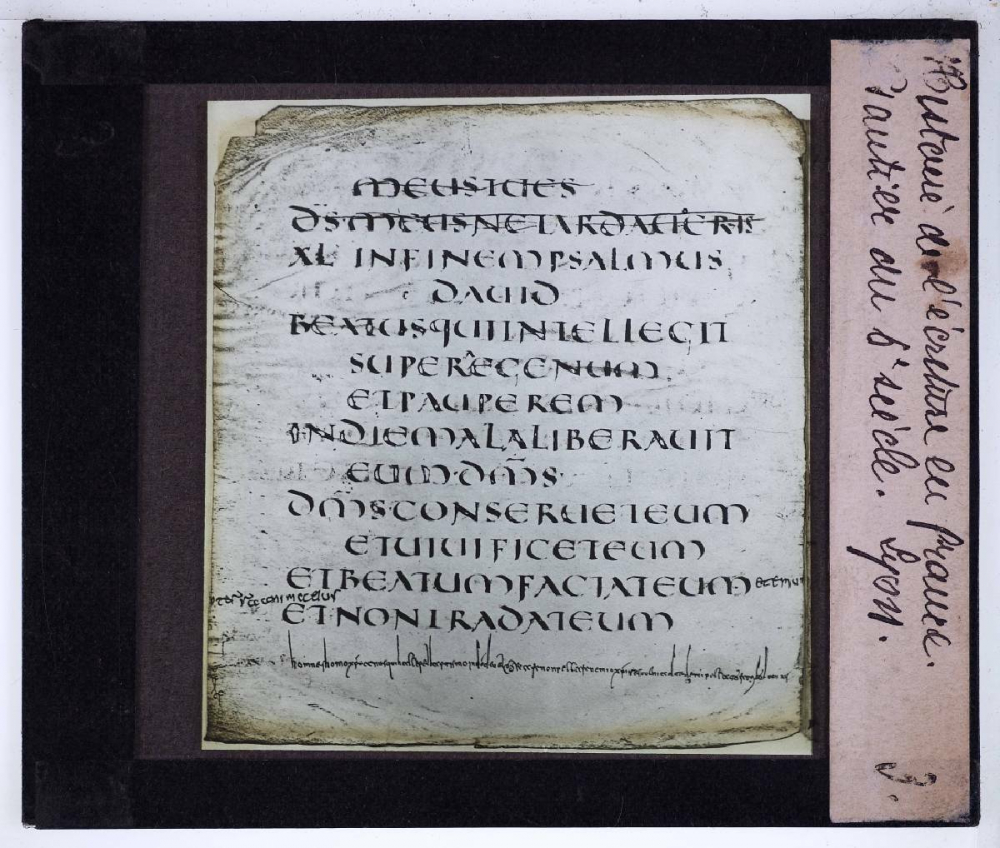 MEUSTUES
DS̄MEUSNETARDAUERIS
XL INFINEMPSALMUS
DAUID
BEATUSQUIINTELLEGIT
SUPEREGENUM
ETPAUPEREM
INDIEMALALIBERAUIT
EUM·DM̄S
DM̄SCONSERUETEUM
ETUIUIFICETEUM
ETBEATUMFACIATEUM
ETNONTRADATEUM
Histoire de l'écriture en France.
Psautier du 5e siècle. Lyon.
3.